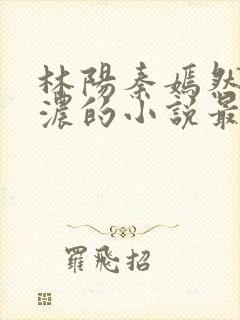 林陽秦嫣然
濃的小說最
羅飛招